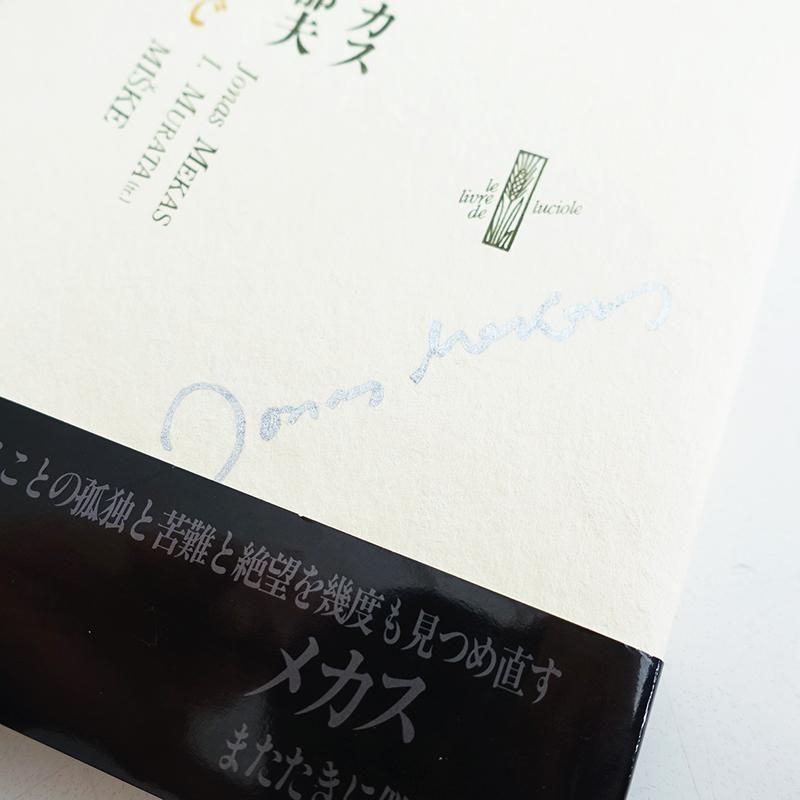 カス
郁夫
で
Jonas MEKAS
I. MURATA (tr.)
MIŠKE
le
livre
de
luciole
Jonas Mekas
ことの孤独と苦難と絶望を幾度も見つめ直す
メカス
またたきに